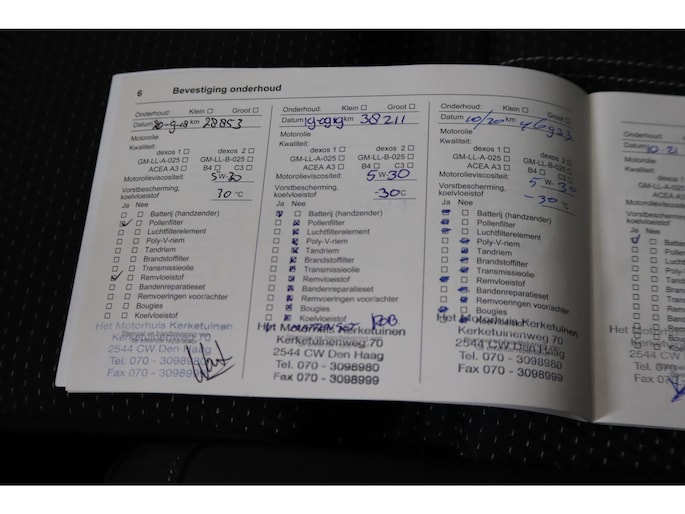 6 Bevestiging onderhoud
Onderhoud: Klein ☐ Groot ☐
Datum 20-9-18 km 28853
Motorolie
Kwaliteit:
dexos 1 ☐ dexos 2 ☐
GM-LL-A-025 ☐ GM-LL-B-025 ☐
ACEA A3 ☐ B4 ☐ C3 ☐
Motorolieviscositeit: 5 W-30
Vorstbescherming,
koelvloeistof 30 °C
Ja Nee
☐ ☐ Batterij (handzender)
☑ ☐ Pollenfilter
☐ ☐ Luchtfilterelement
☐ ☐ Poly-V-riem
☐ ☐ Tandriem
☐ ☐ Brandstoffilter
☐ ☐ Transmissieolie
☑ ☐ Remvloeistof
☐ ☐ Bandenreparatieset
☐ ☐ Remvoeringen voor/achter
☐ ☐ Bougies
☐ ☐ Koelvloeistof
Het Motorhuis Kerketuinen
Kerketuinenweg 70
2544 CW Den Haag
Tel. 070 - 3098980
Fax 070 - 3098999
Onderhoud: Klein ☐ Groot ☐
Datum km 38211
Motorolie
Kwaliteit:
dexos 1 ☐ dexos 2 ☐
GM-LL-A-025 ☐ GM-LL-B-025 ☐
ACEA A3 ☐ B4 ☐ C3 ☐
Motorolieviscositeit: 5 W-30
Vorstbescherming,
koelvloeistof -30 °C
Ja Nee
Batterij (handzender)
Pollenfilter
Luchtfilterelement
Poly-V-riem
Tandriem
Brandstoffilter
Transmissieolie
Remvloeistof
Bandenreparatieset
Remvoeringen voor/achter
Bougies
Koelvloeistof
Het Motorhuis Kerketuinen
Kerketuinenweg 70
2544 CW Den Haag
Tel. 070 - 3098980
Fax 070 - 3098999
Onderhoud: Klein ☐ Groot ☐
Datum 10/20 km 46923
Motorolie
Kwaliteit:
dexos 1 ☐ dexos 2 ☐
GM-LL-A-025 ☐ GM-LL-B-025 ☐
ACEA A3 ☐ B4 ☐ C3 ☐
Motorolieviscositeit: 5 W-30
Vorstbescherming,
koelvloeistof -30 °C
Ja Nee
Batterij (handzender)
Pollenfilter
Luchtfilterelement
Poly-V-riem
Tandriem
Brandstoffilter
Transmissieolie
Remvloeistof
Bandenreparatieset
Remvoeringen voor/achter
Bougies
Koelvloeistof
Het Motorhuis Kerketuinen
Kerketuinenweg 70
2544 CW Den Haag
Tel. 070 - 3098980
Fax 070 - 3098999
Onderhoud:
Datum 10-21
Motorolie
Kwaliteit:
Vorstbescherming,
koelvloeistof
Ja Nee